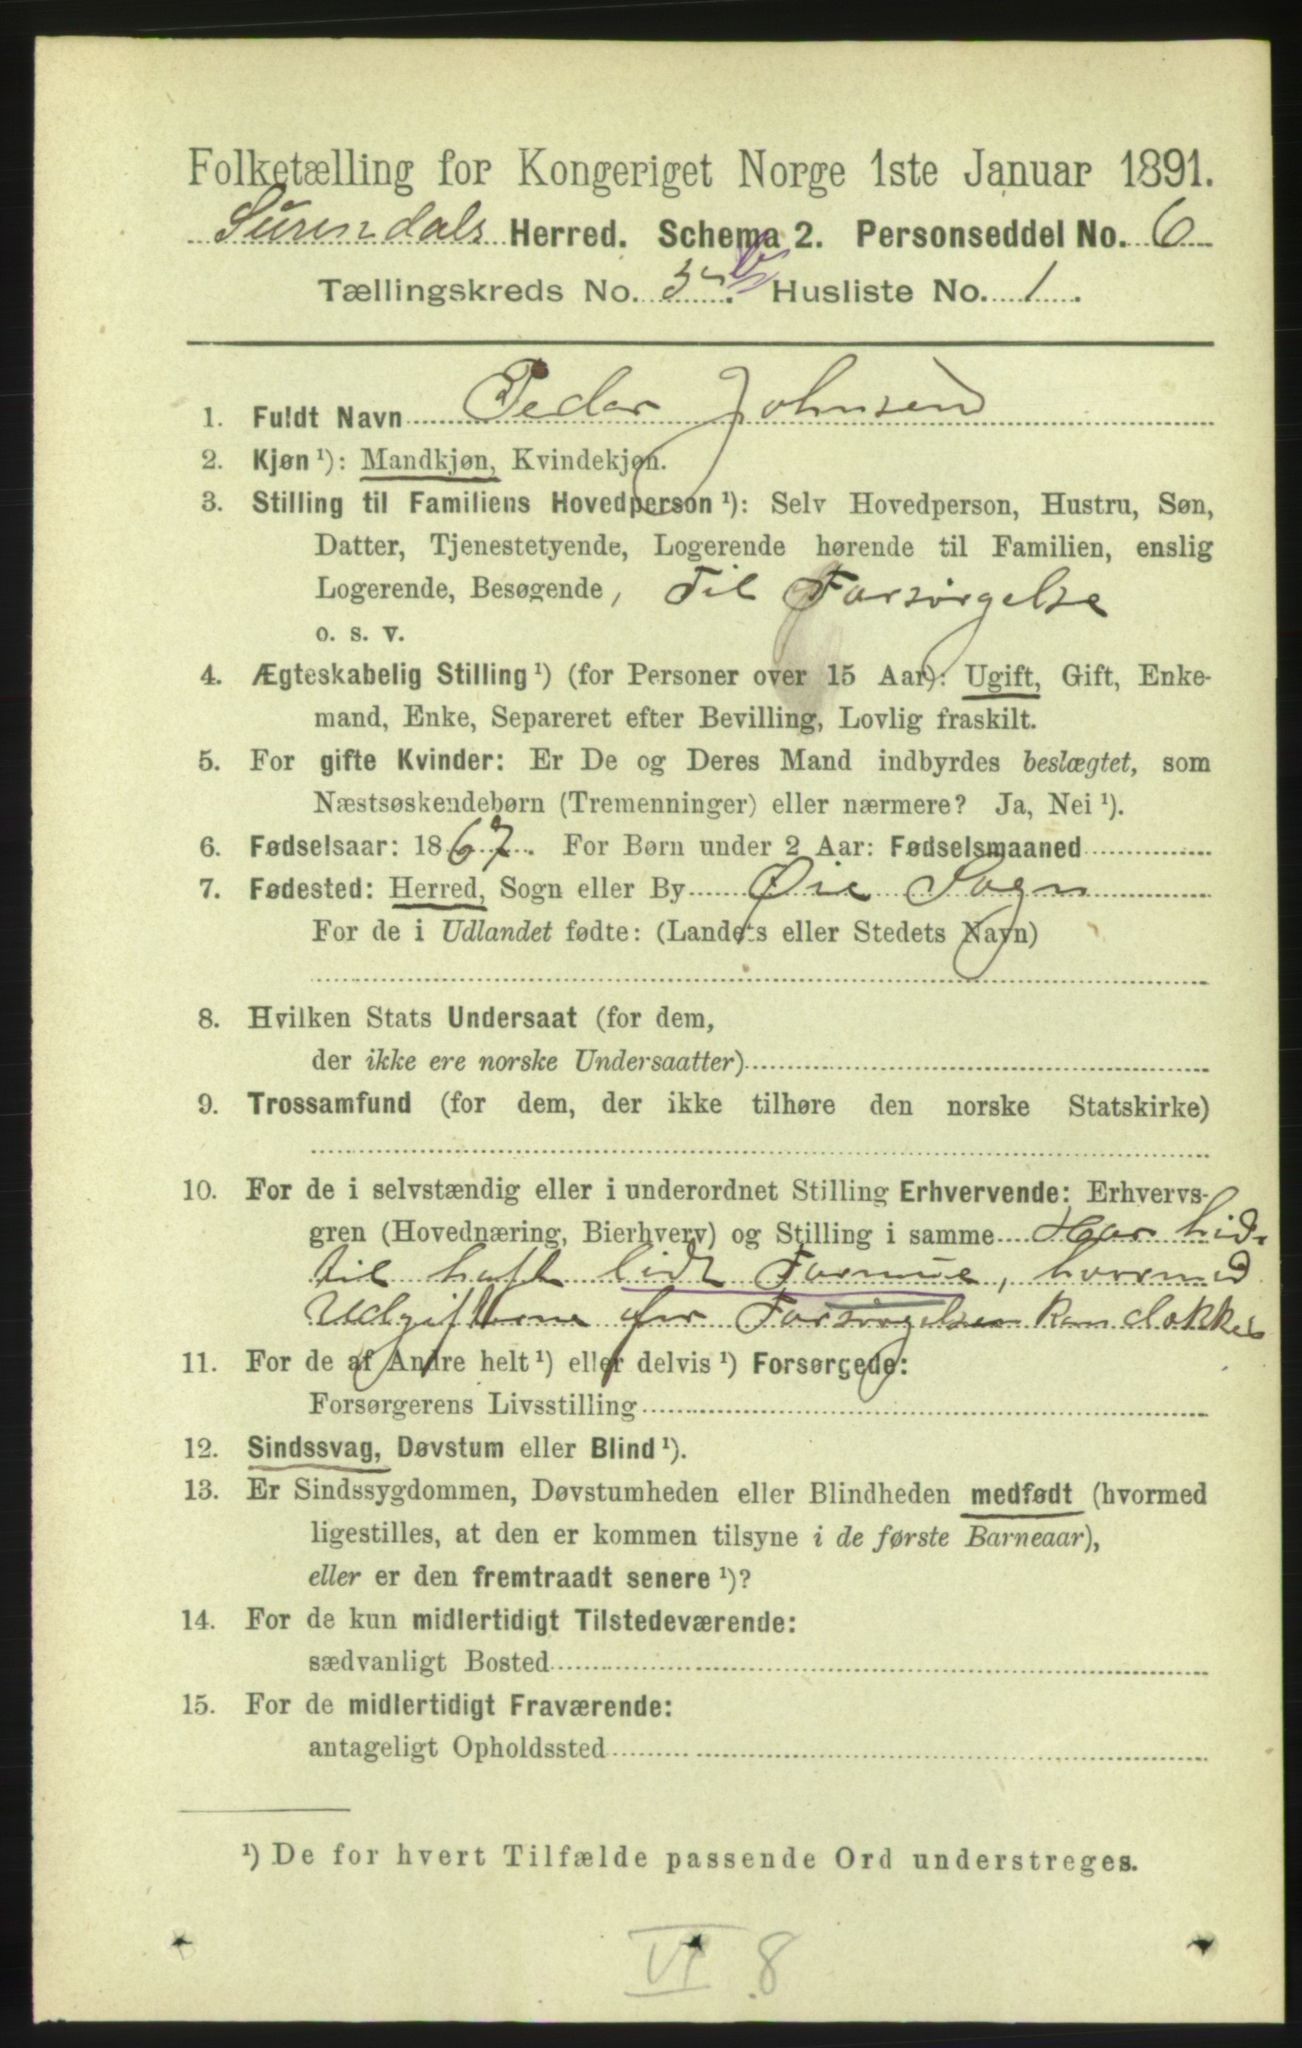 Folketælling for Kongeriget Norge 1ste Januar 1891.
Surendals Herred. Schema 2. Personseddel No. 6
Tællingskreds No. 5 b. Husliste No. 1.
1. Fuldt Navn Peder Johnsen
2. Kjøn ¹): Mandkjøn, Kvindekjøn.
3. Stilling til Familiens Hovedperson ¹): Selv Hovedperson, Hustru, Søn,
Datter, Tjenestetyende, Logerende hørende til Familien, enslig
Logerende, Besøgende, Til Forsørgelse
o. s. v.
4. Ægteskabelig Stilling ¹) (for Personer over 15 Aar): Ugift, Gift, Enke-
mand, Enke, Separeret efter Bevilling, Lovlig fraskilt.
5. For gifte Kvinder: Er De og Deres Mand indbyrdes beslægtet, som
Næstsøskendebørn (Tremenninger) eller nærmere? Ja, Nei ¹).
6. Fødselsaar: 1867. For Børn under 2 Aar: Fødselsmaaned
7. Fødested: Herred, Sogn eller By Øie Sogn
For de i Udlandet fødte: (Landets eller Stedets Navn)
8. Hvilken Stats Undersaat (for dem,
der ikke ere norske Undersaatter)
9. Trossamfund (for dem, der ikke tilhøre den norske Statskirke)
10. For de i selvstændig eller i underordnet Stilling Erhvervende: Erhvervs-
gren (Hovednæring, Bierhverv) og Stilling i samme Har hid-
til haft lidt Formue, hvormed
Udgifterne for Forsørgelsen kan dækkes
11. For de af Andre helt ¹) eller delvis ¹) Forsørgede:
Forsørgerens Livsstilling
12. Sindssvag, Døvstum eller Blind ¹).
13. Er Sindssygdommen, Døvstumheden eller Blindheden medfødt (hvormed
ligestilles, at den er kommen tilsyne i de første Barneaar),
eller er den fremtraadt senere ¹)?
14. For de kun midlertidigt Tilstedeværende:
sædvanligt Bosted
15. For de midlertidigt Fraværende:
antageligt Opholdssted
¹) De for hvert Tilfælde passende Ord understreges.
VI 8